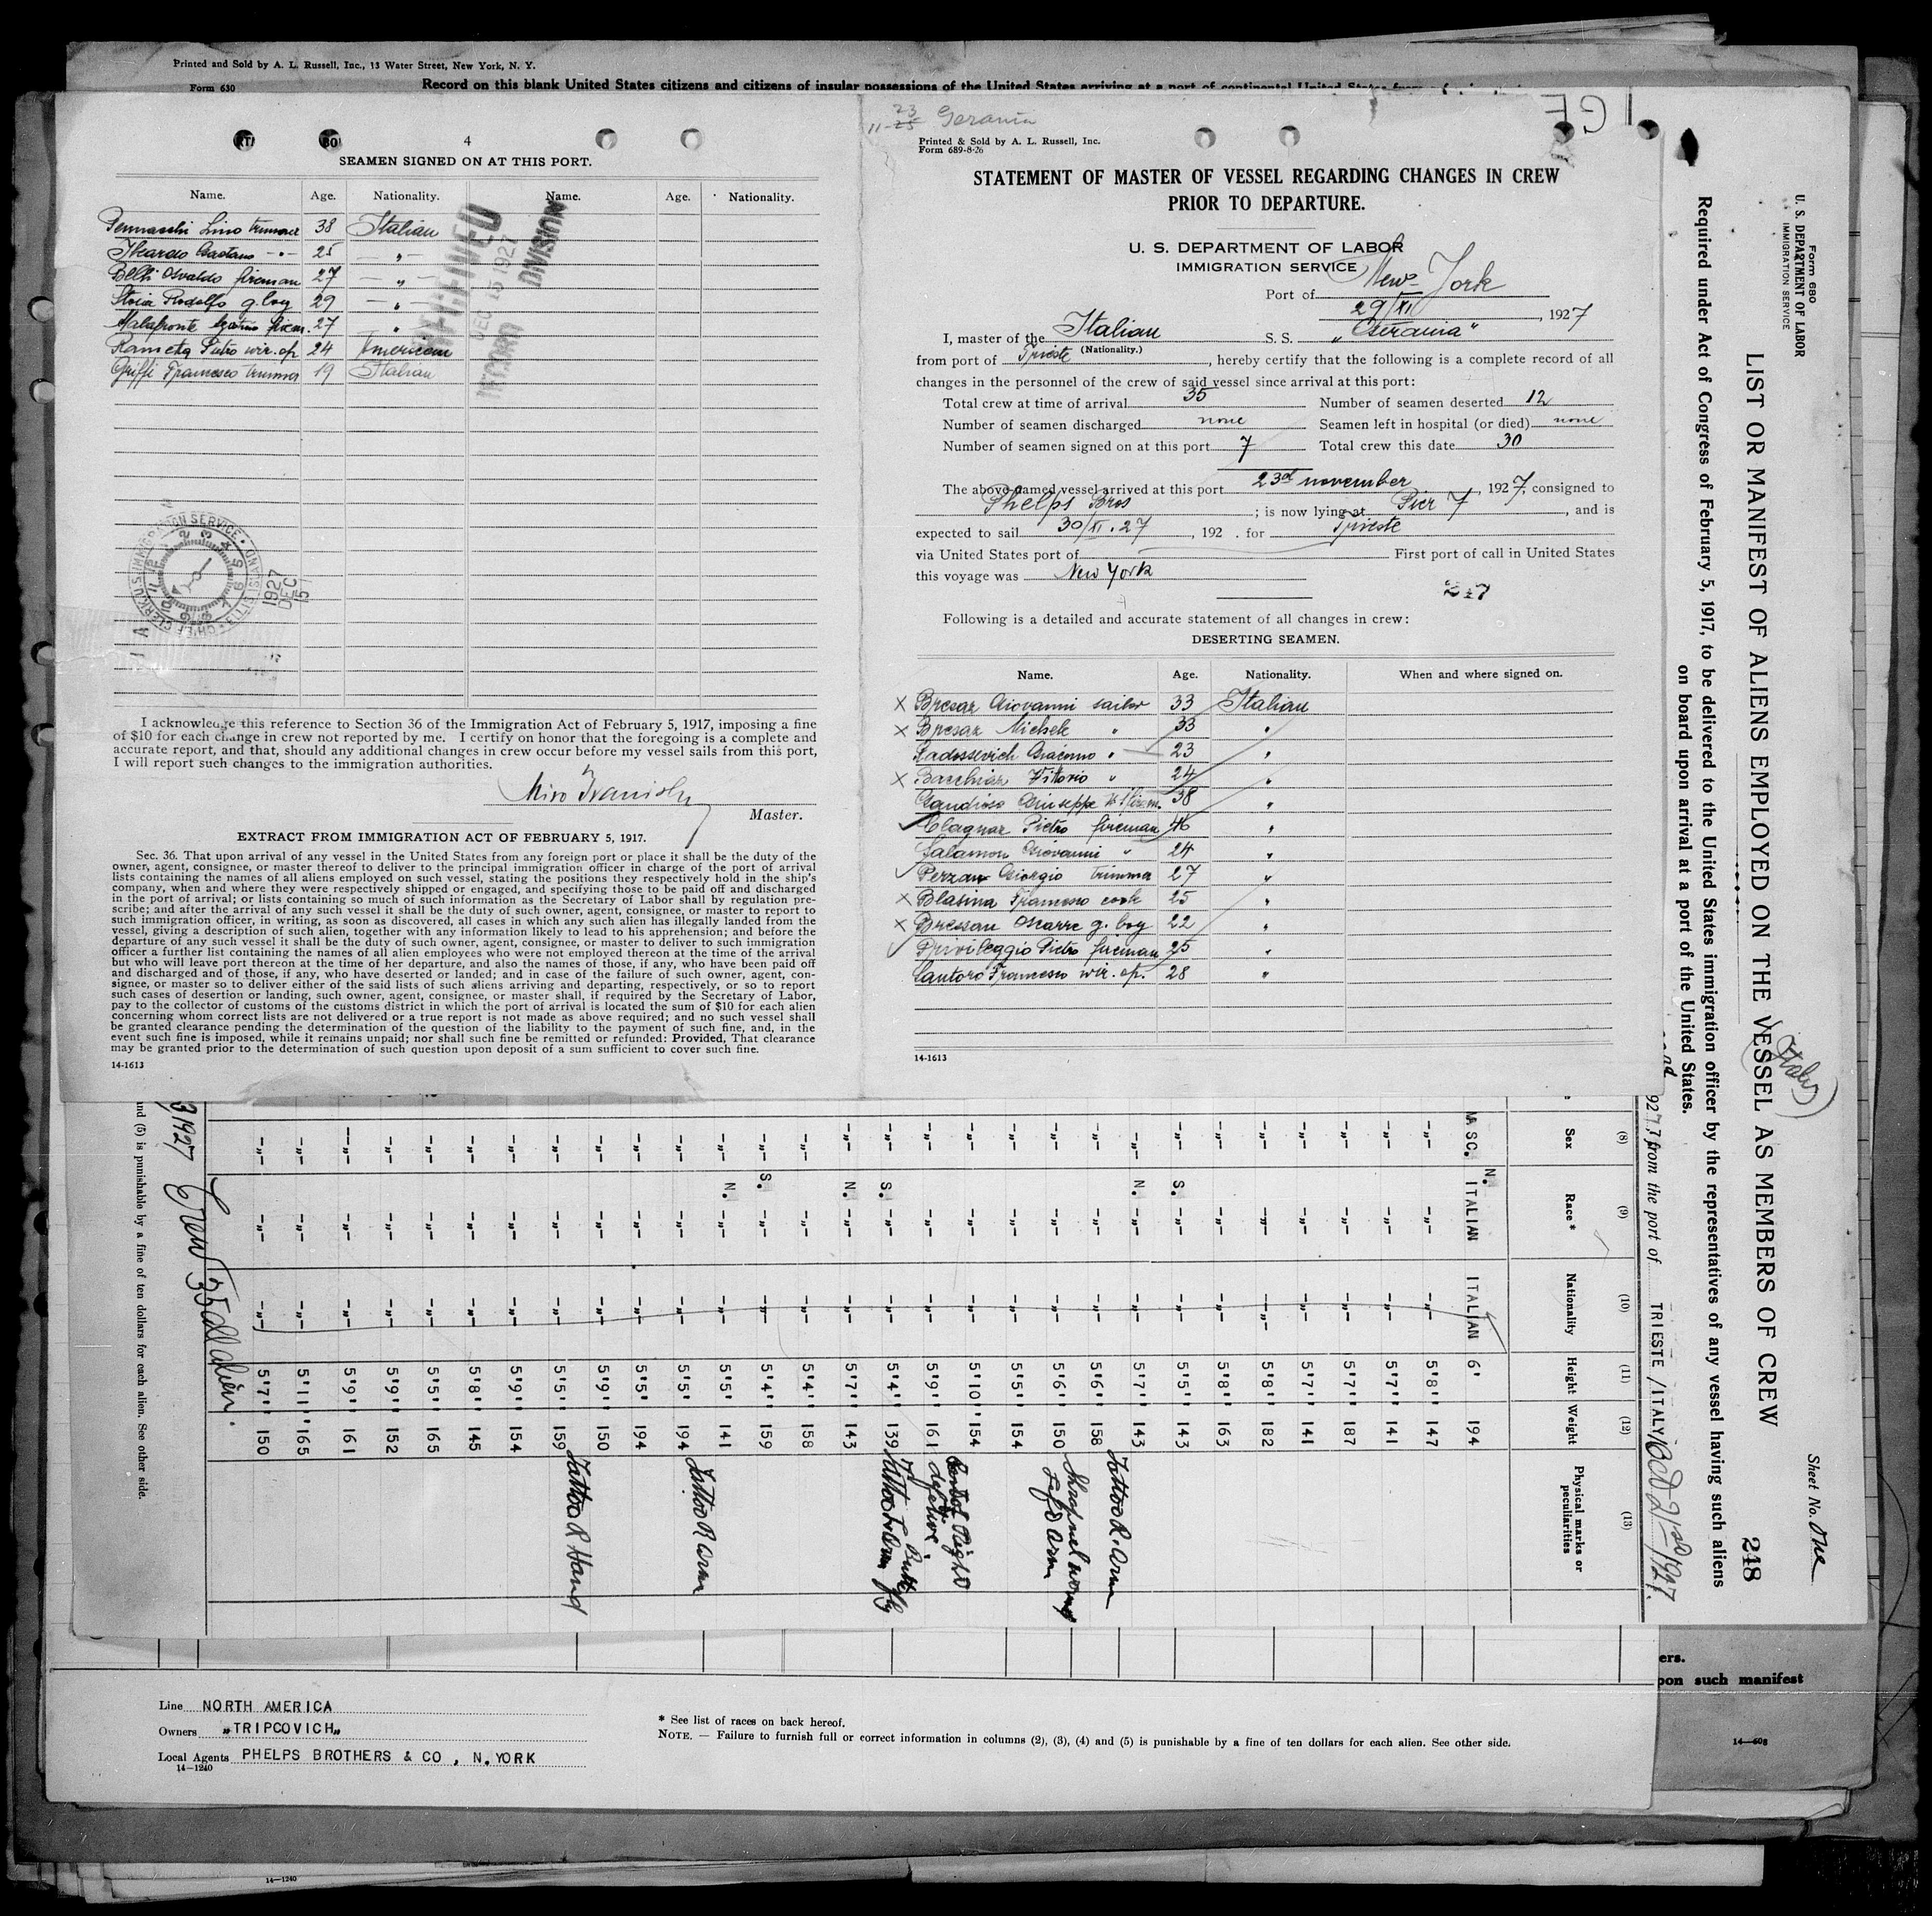 Printed and Sold by A. L. Russell, Inc., 13 Water Street, New York, N. Y.
Form 630
Record on this blank United States citizens and citizens of insular possessions of the United States arriving at a port of continental United States from
4
SEAMEN SIGNED ON AT THIS PORT.
Name. Age. Nationality. Name. Age. Nationality.
Lino trimmer 38 Italian
Gaetano -"- 25 -"-
Belli Osvaldo fireman 27 -"-
Rodolfo g. boy 29 -"-
Malafronte 27 "
Rametta Pietro wir. op. 24 American
Griffi Francesco trimmer 19 Italian
RECEIVED
DEC 15 1927
RECORD DIVISION
1927
DEC
15
I acknowledge this reference to Section 36 of the Immigration Act of February 5, 1917, imposing a fine
of $10 for each change in crew not reported by me. I certify on honor that the foregoing is a complete and
accurate report, and that, should any additional changes in crew occur before my vessel sails from this port,
I will report such changes to the immigration authorities.
Master.
EXTRACT FROM IMMIGRATION ACT OF FEBRUARY 5, 1917.
Sec. 36. That upon arrival of any vessel in the United States from any foreign port or place it shall be the duty of the
owner, agent, consignee, or master thereof to deliver to the principal immigration officer in charge of the port of arrival
lists containing the names of all aliens employed on such vessel, stating the positions they respectively hold in the ship's
company, when and where they were respectively shipped or engaged, and specifying those to be paid off and discharged
in the port of arrival; or lists containing so much of such information as the Secretary of Labor shall by regulation pre-
scribe; and after the arrival of any such vessel it shall be the duty of such owner, agent, consignee, or master to report to
such immigration officer, in writing, as soon as discovered, all cases in which any such alien has illegally landed from the
vessel, giving a description of such alien, together with any information likely to lead to his apprehension; and before the
departure of any such vessel it shall be the duty of such owner, agent, consignee, or master to deliver to such immigration
officer a further list containing the names of all alien employees who were not employed thereon at the time of the arrival
but who will leave port thereon at the time of her departure, and also the names of those, if any, who have been paid off
and discharged and of those, if any, who have deserted or landed; and in case of the failure of such owner, agent, con-
signee, or master so to deliver either of the said lists of such aliens arriving and departing, respectively, or so to report
such cases of desertion or landing, such owner, agent, consignee, or master shall, if required by the Secretary of Labor,
pay to the collector of customs of the customs district in which the port of arrival is located the sum of $10 for each alien
concerning whom correct lists are not delivered or a true report is not made as above required; and no such vessel shall
be granted clearance pending the determination of the question of the liability to the payment of such fine, and, in the
event such fine is imposed, while it remains unpaid; nor shall such fine be remitted or refunded: Provided, That clearance
may be granted prior to the determination of such question upon deposit of a sum sufficient to cover such fine.
14-1613
11-23 Gerania
Printed & Sold by A. L. Russell, Inc.
Form 689-8-26
STATEMENT OF MASTER OF VESSEL REGARDING CHANGES IN CREW
PRIOR TO DEPARTURE.
U. S. DEPARTMENT OF LABOR
IMMIGRATION SERVICE
Port of New York
29/XI, 1927
I, master of the Italian S. S. "Gerania"
(Nationality.)
from port of Trieste, hereby certify that the following is a complete record of all
changes in the personnel of the crew of said vessel since arrival at this port:
Total crew at time of arrival 35 Number of seamen deserted 12
Number of seamen discharged none Seamen left in hospital (or died) none
Number of seamen signed on at this port 7 Total crew this date 30
The above-named vessel arrived at this port 23d november, 1927, consigned to
Phelps Bros; is now lying at Pier 7, and is
expected to sail 30/XI.27, 192 . for Trieste
via United States port of First port of call in United States
this voyage was New York
247
Following is a detailed and accurate statement of all changes in crew:
DESERTING SEAMEN.
Name. Age. Nationality. When and where signed on.
x Bresaz Giovanni sailor 33 Italian
x Bresaz Michele " 33 "
Radossevich Giacomo " 23 "
x Bacchiaz Vittorio " 24 "
Gaudioso Giuseppe 38 "
Clagnaz Pietro fireman 46 "
Salamon Giovanni " 24 "
Perzan Giorgio trimmer 27 "
x Blasina Francesco cook 25 "
x Bressan g. boy 22 "
Privileggio Pietro fireman 25 "
Cantoro Francesco wir. op. 28 "
14-1613
Form 680
U. S. DEPARTMENT OF LABOR
IMMIGRATION SERVICE
Sheet No. One
LIST OR MANIFEST OF ALIENS EMPLOYED ON THE VESSEL AS MEMBERS OF CREW
248
(Italy)
Required under Act of Congress of February 5, 1917, to be delivered to the United States immigration officer by the representatives of any vessel having such aliens
on board upon arrival at a port of the United States.
927, from the port of TRIESTE /ITALY/ Oct 21st 1927.
(8) (9) (10) (11) (12) (13)
Sex Race* Nationality Height Weight Physical marks or peculiarities
MASC. N. ITALIAN ITALIAN 6' 194
-"- -"- -"- 5'8'' 147
-"- -"- -"- 5'7'' 141
-"- -"- -"- 5'7'' 187
-"- -"- -"- 5'7'' 141
-"- -"- -"- 5'8'' 182
-"- -"- -"- 5'8'' 163
-"- S. -"- -"- 5'5'' 143
-"- N. -"- -"- 5'7'' 143 Tattoo R. arm
-"- -"- -"- 5'6'' 158 Shrapnel wound
-"- -"- -"- 5'6'' 150 Left arm
-"- -"- -"- 5'5'' 154
-"- -"- -"- 5'10'' 154 Right
-"- -"- -"- 5'9'' 161 defective
-"- S. -"- -"- 5'4'' 139 Tattoo L arm Butterfly
-"- N. -"- -"- 5'7'' 143
-"- -"- -"- 5'4'' 158
-"- S. -"- -"- 5'4'' 159
-"- N. -"- -"- 5'5'' 141
-"- -"- -"- 5'5'' 194 Tattoo R arm
-"- -"- -"- 5'5'' 194
-"- -"- -"- 5'9'' 150
-"- -"- -"- 5'5'' 159 Tattoo R Hand
-"- -"- -"- 5'9'' 154
-"- -"- -"- 5'8'' 145
-"- -"- -"- 5'5'' 165
-"- -"- -"- 5'9'' 152
-"- -"- -"- 5'9'' 161
-"- -"- -"- 5'11'' 165
-"- -"- -"- 5'7'' 150
3 1927 Crew 35 all alien.
and (5) is punishable by a fine of ten dollars for each alien. See other side.
Line NORTH AMERICA
Owners „TRIPCOVICH„
Local Agents PHELPS BROTHERS & CO, N.YORK
14-1240
* See list of races on back hereof.
NOTE. — Failure to furnish full or correct information in columns (2), (3), (4) and (5) is punishable by a fine of ten dollars for each alien. See other side.
ers.
pon such manifest
14-608
14-1240